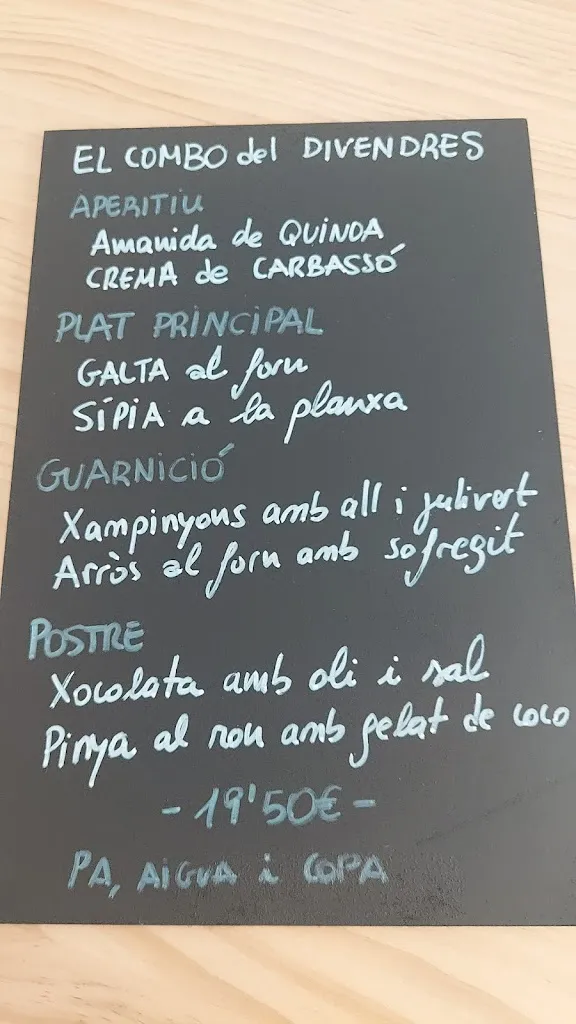 EL COMBO del DIVENDRES
APERITIU
Amanida de QUINOA
CREMA de CARBASSÓ
PLAT PRINCIPAL
GALTA al forn
SÍPIA a la planxa
GUARNICIÓ
Xampinyons amb all i julivert
Arròs al forn amb sofregit
POSTRE
Xocolata amb oli i sal
Pinya al rom amb gelat de coco
- 19'50€ -
PA, AIGUA i COPA